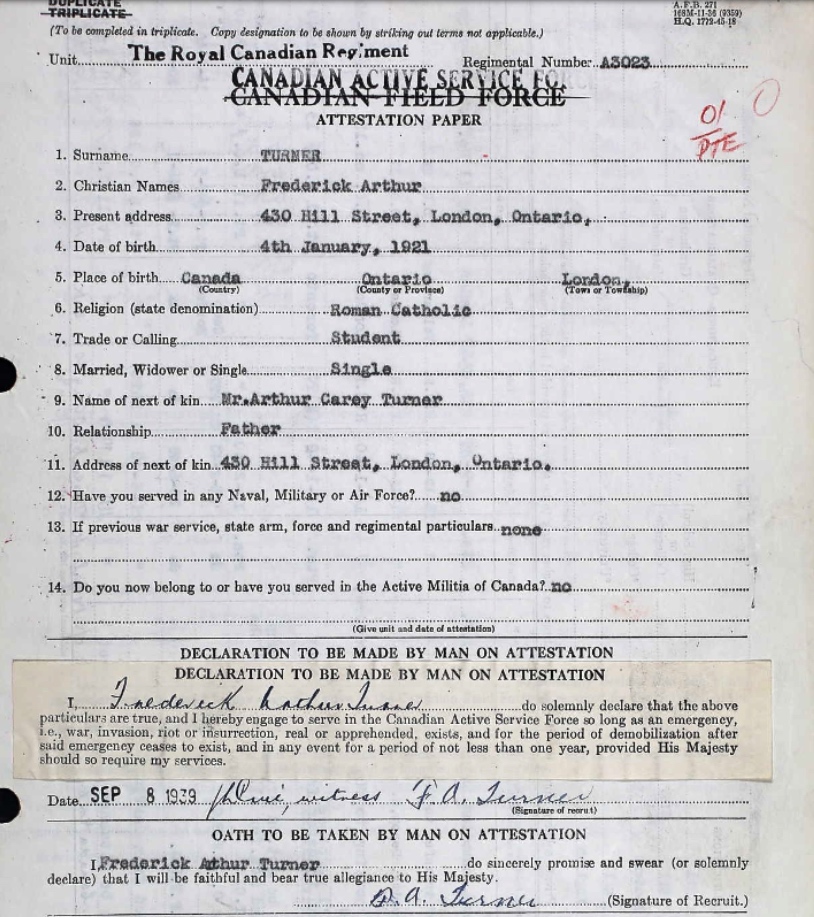 DUPLICATE
TRIPLICATE
A.F.B. 271
168M-11-36 (9359)
H.Q. 1772-45-18
(To be completed in triplicate. Copy designation to be shown by striking out terms not applicable.)
Unit The Royal Canadian Regiment Regimental Number A3023
CANADIAN ACTIVE SERVICE FORCE
CANADIAN FIELD FORCE
ATTESTATION PAPER
01
PTE
1. Surname TURNER
2. Christian Names Frederick Arthur
3. Present address 430 Hill Street, London, Ontario,
4. Date of birth 4th January, 1921
5. Place of birth Canada Ontario London,
(Country) (County or Province) (Town or Township)
6. Religion (state denomination) Roman Catholic
7. Trade or Calling Student
8. Married, Widower or Single Single
9. Name of next of kin Mr.Arthur Carey Turner
10. Relationship Father
11. Address of next of kin 430 Hill Street, London, Ontario.
12. Have you served in any Naval, Military or Air Force? no
13. If previous war service, state arm, force and regimental particulars none
14. Do you now belong to or have you served in the Active Militia of Canada? no
(Give unit and date of attestation)
DECLARATION TO BE MADE BY MAN ON ATTESTATION
DECLARATION TO BE MADE BY MAN ON ATTESTATION
I, Frederick Arthur Turner do solemnly declare that the above
particulars are true, and I hereby engage to serve in the Canadian Active Service Force so long as an emergency,
i.e., war, invasion, riot or insurrection, real or apprehended, exists, and for the period of demobilization after
said emergency ceases to exist, and in any event for a period of not less than one year, provided His Majesty
should so require my services.
Date SEP 8 1939 witness F A. Turner
(Signature of recruit)
OATH TO BE TAKEN BY MAN ON ATTESTATION
I, Frederick Athur Turner do sincerely promise and swear (or solemnly
declare) that I will be faithful and bear true allegiance to His Majesty.
A. Turner (Signature of Recruit.)